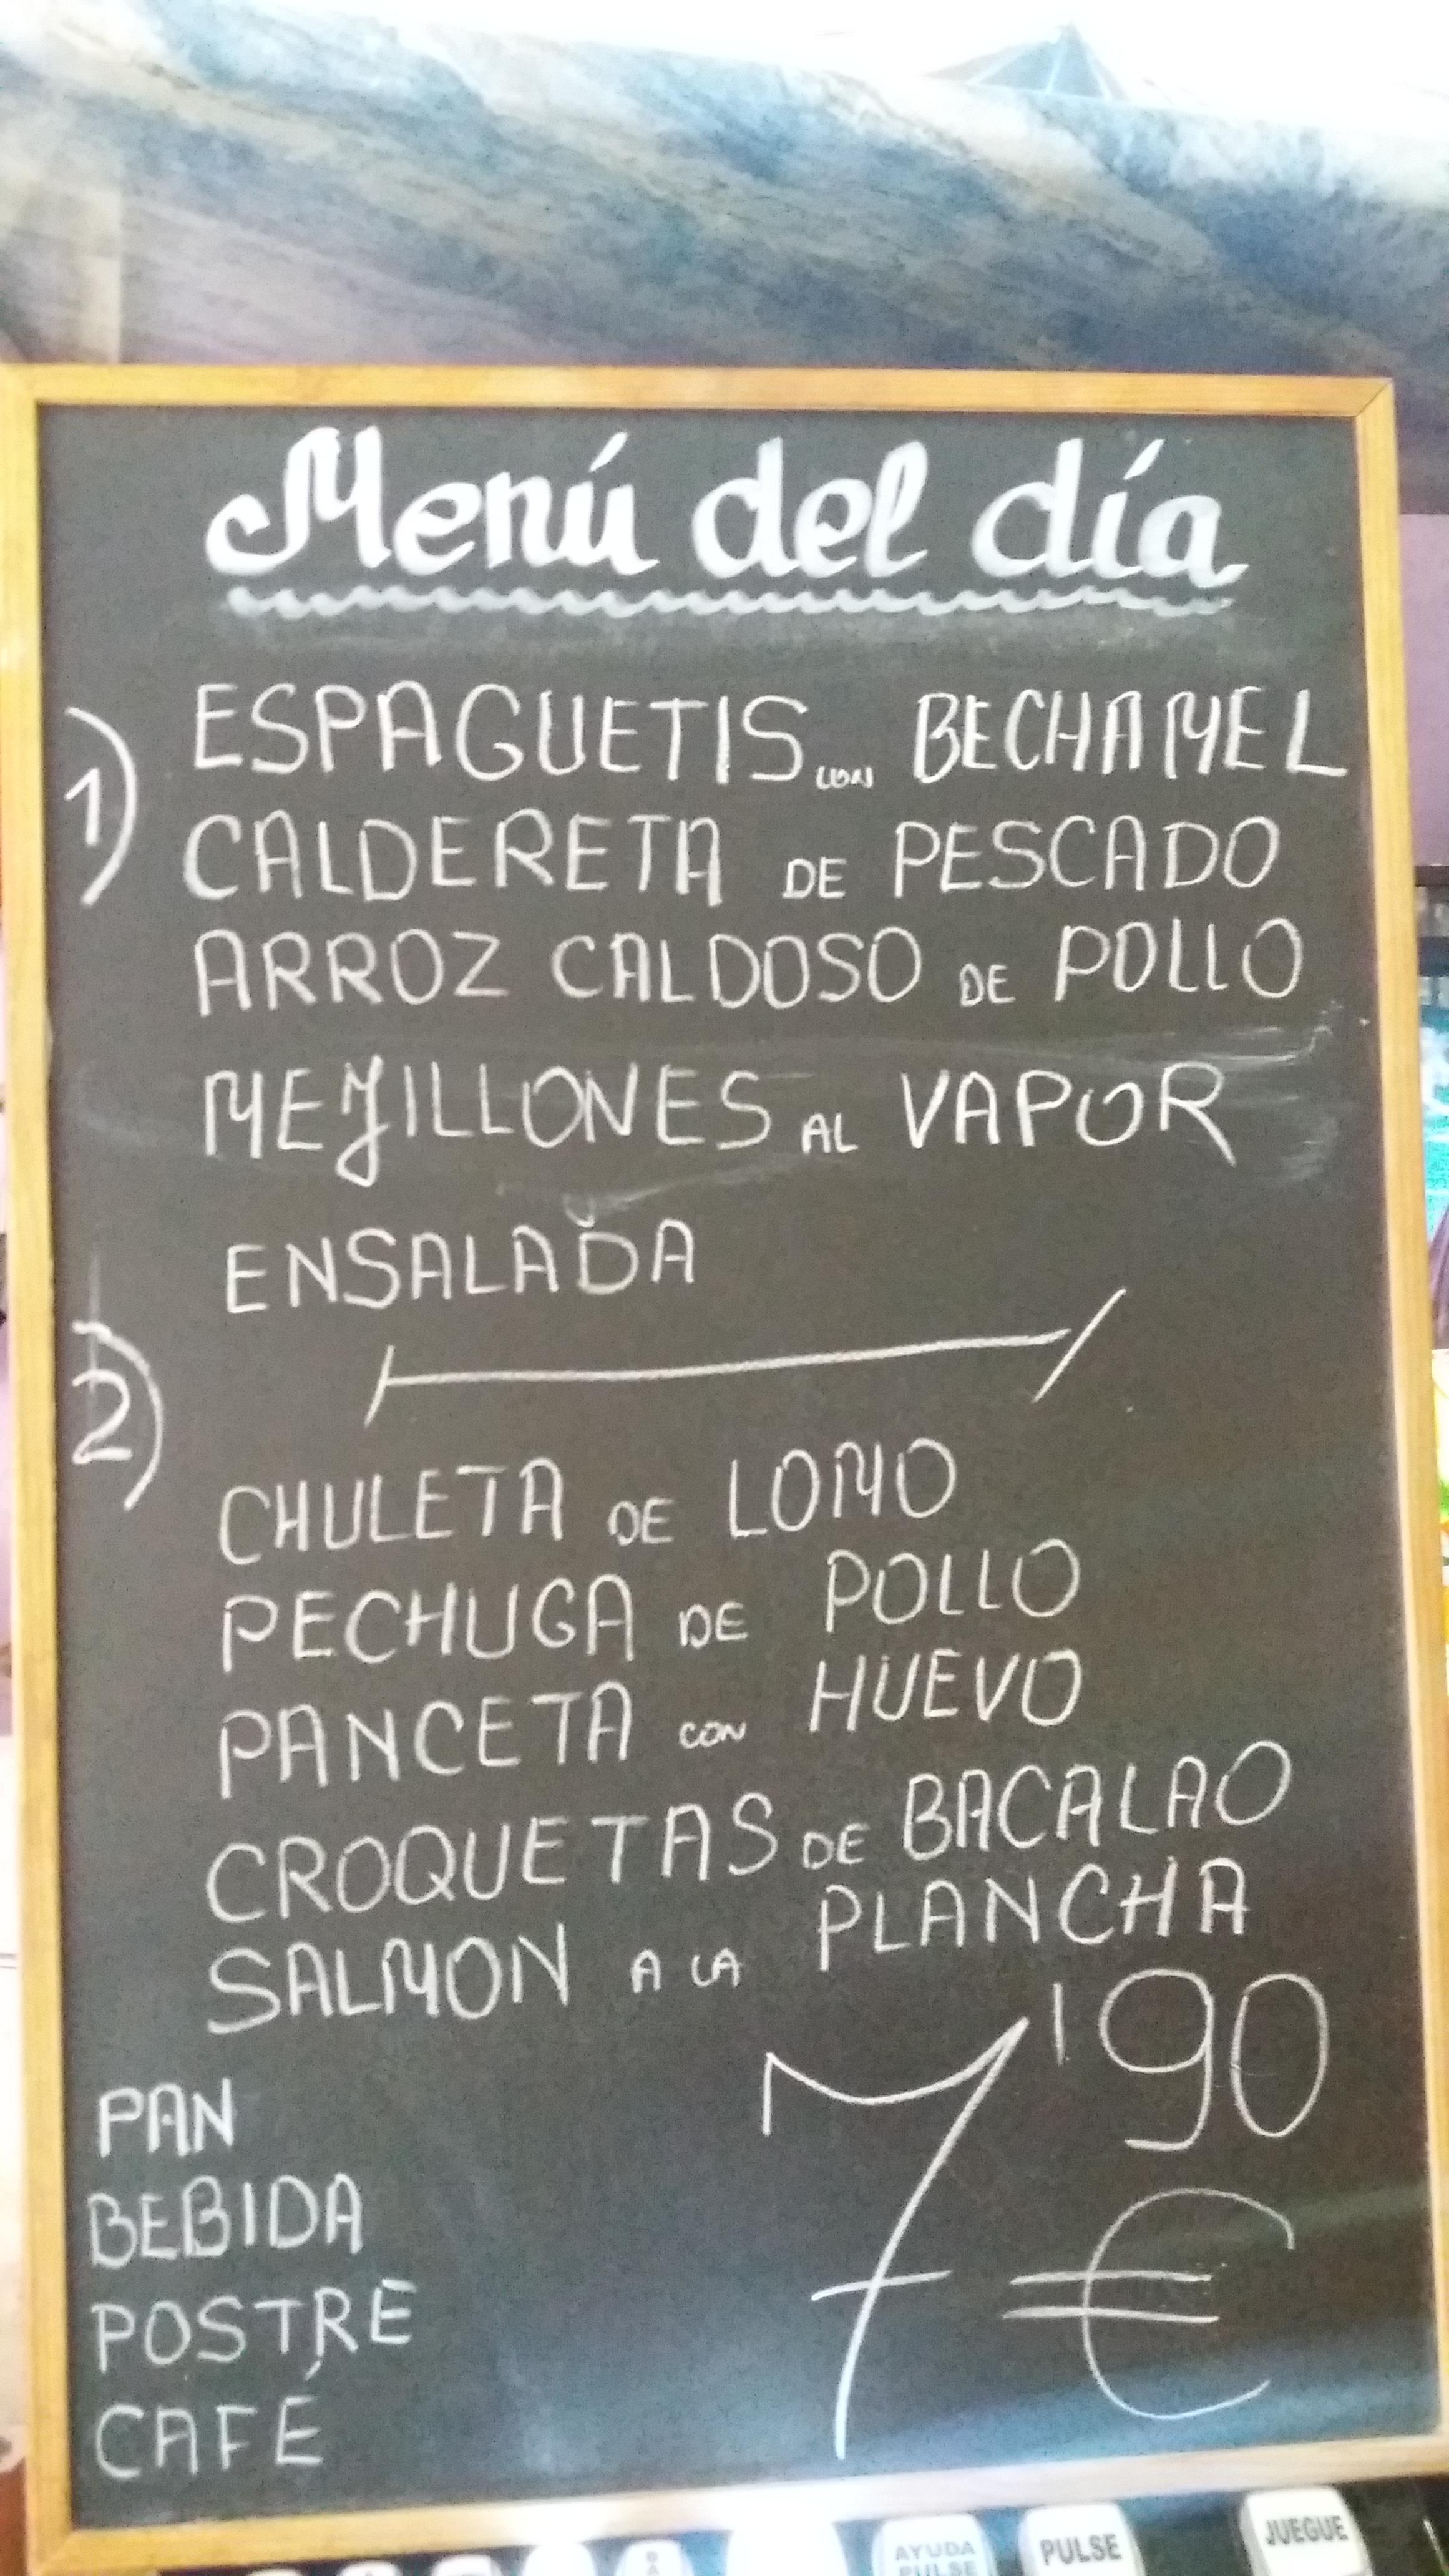 Menú del día
1) ESPAGUETIS CON BECHAMEL
CALDERETA DE PESCADO
ARROZ CALDOSO DE POLLO
MEJILLONES AL VAPOR
ENSALADA
2)
CHULETA DE LOMO
PECHUGA DE POLLO
PANCETA CON HUEVO
CROQUETAS DE BACALAO
SALMON A LA PLANCHA
7'90 €
PAN
BEBIDA
POSTRE
CAFÉ
AYUDA
PULSE
PULSE
JUEGUE